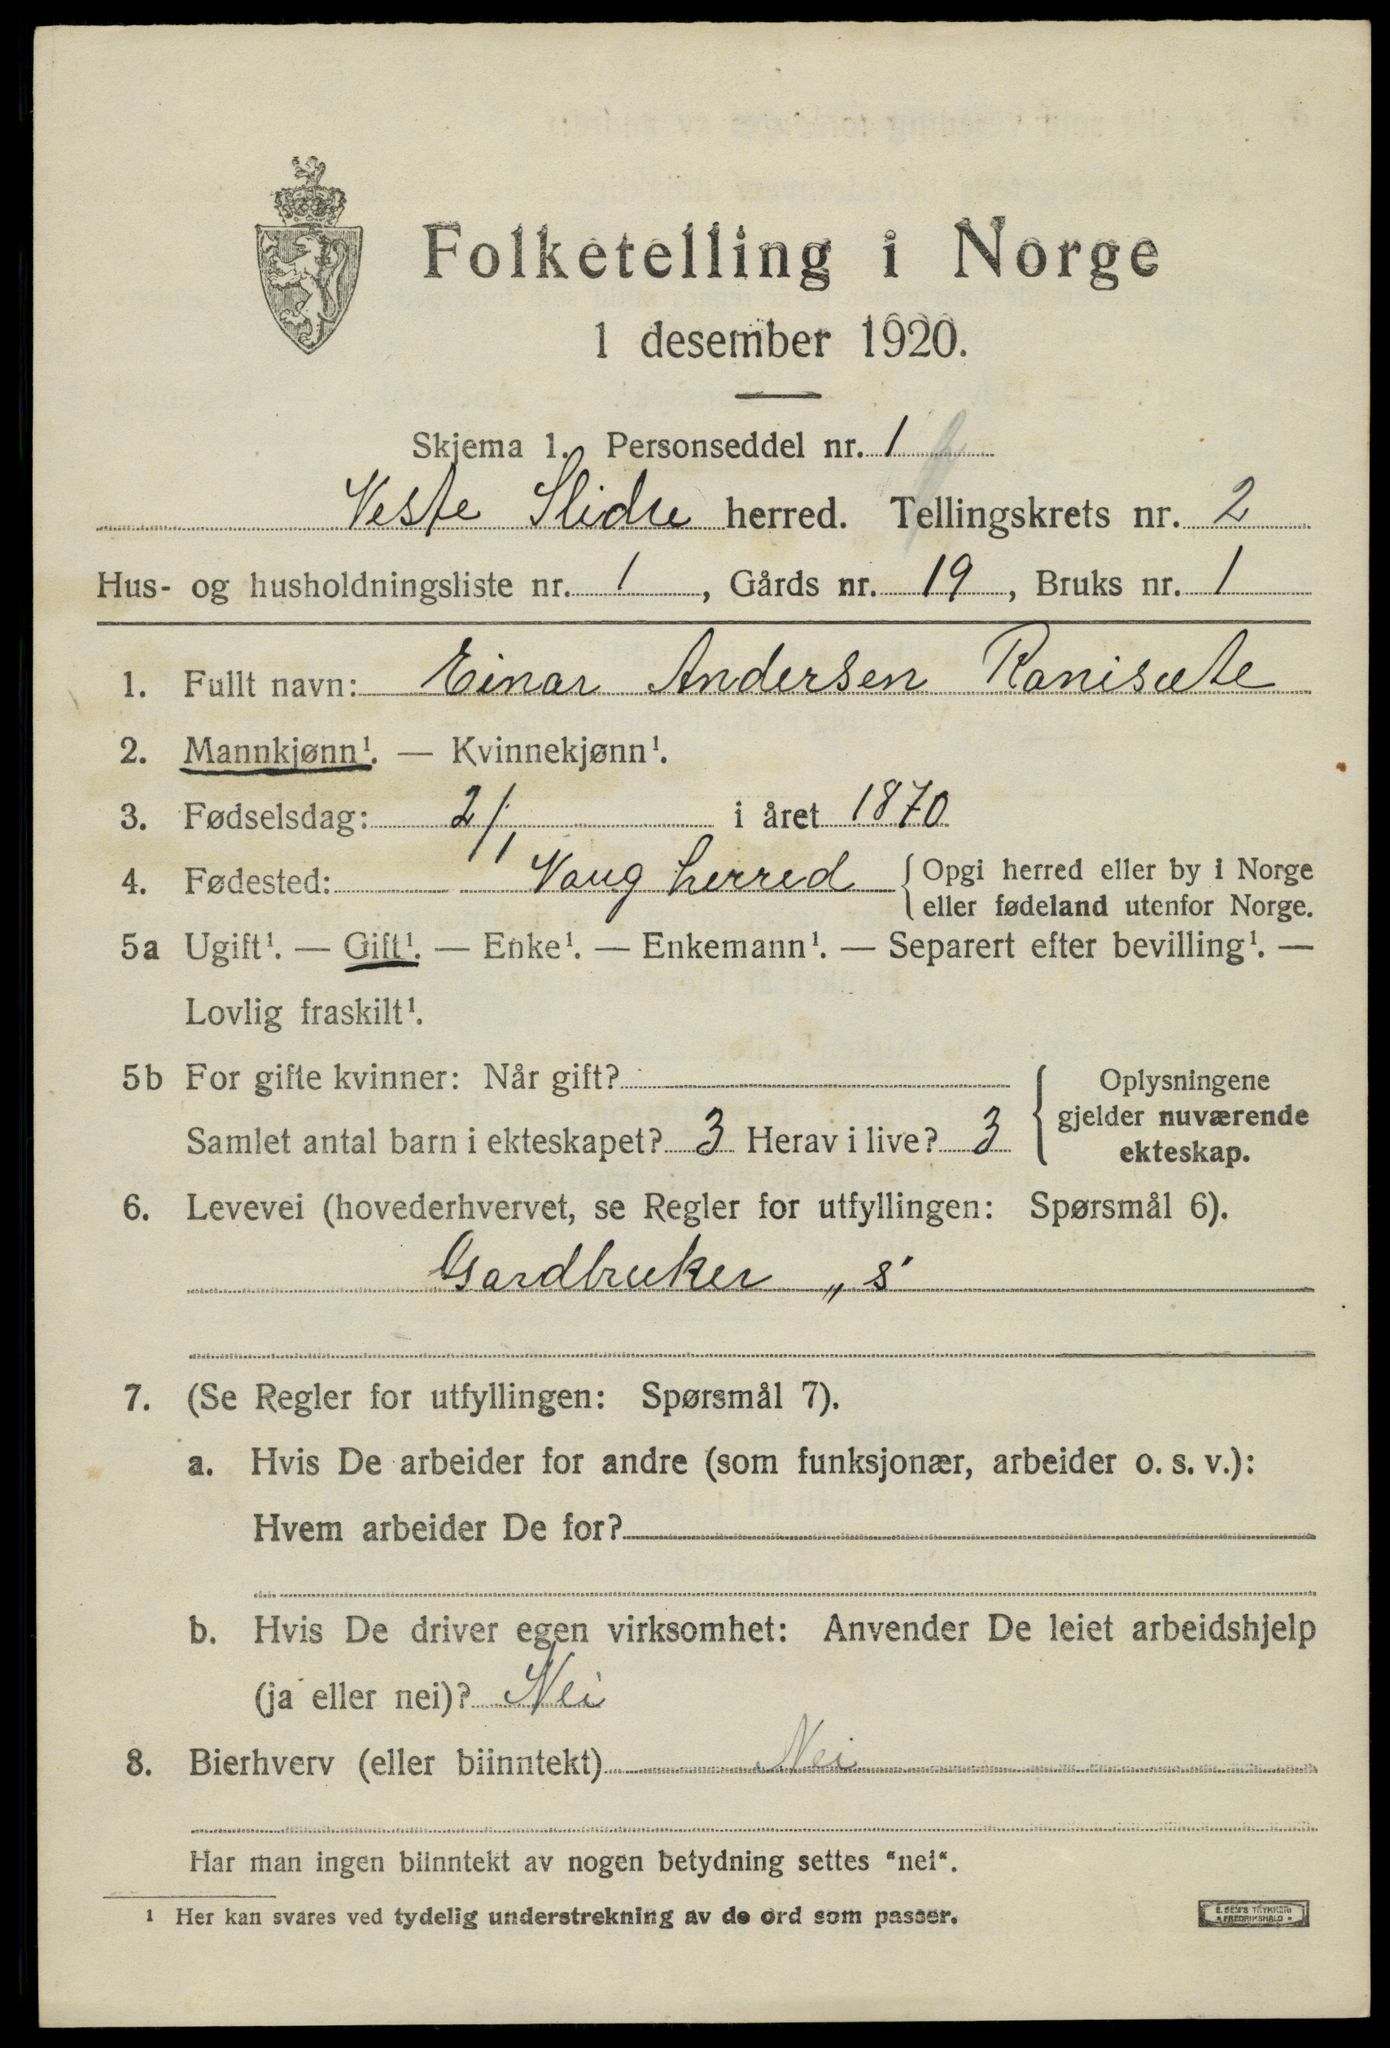 Folketelling i Norge
1 desember 1920.
Skjema 1. Personseddel nr. 1
Veste Slidre herred. Tellingskrets nr. 2
Hus- og husholdningsliste nr. 1, Gårds nr. 19, Bruks nr. 1
1. Fullt navn: Einar Andersen Ranisæte
2. Mannkjønn¹. — Kvinnekjønn¹.
3. Fødselsdag: 2/1 i året 1870
4. Fødested: Vang herred { Opgi herred eller by i Norge
eller fødeland utenfor Norge.
5a Ugift¹. — Gift¹. — Enke¹. — Enkemann¹. — Separert efter bevilling¹. —
Lovlig fraskilt¹.
5b For gifte kvinner: Når gift?
Samlet antal barn i ekteskapet? 3 Herav i live? 3
{ Oplysningene
gjelder nuværende
ekteskap.
6. Levevei (hovederhvervet, se Regler for utfyllingen: Spørsmål 6).
Gardbruker „s"
7. (Se Regler for utfyllingen: Spørsmål 7).
a. Hvis De arbeider for andre (som funksjonær, arbeider o. s. v.):
Hvem arbeider De for?
b. Hvis De driver egen virksomhet: Anvender De leiet arbeidshjelp
(ja eller nei)? Nei
8. Bierhverv (eller biinntekt) Nei
Har man ingen biinntekt av nogen betydning settes "nei".
¹ Her kan svares ved tydelig understrekning av de ord som passer.
E. SEM'S TRYKKERI
FREDRIKSHALD